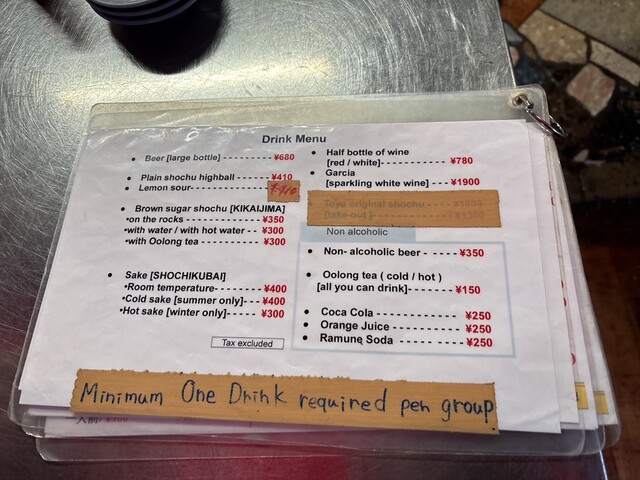 Drink Menu
Beer [large bottle] ------------ ¥680
Plain shochu highball ------- ¥410
Lemon sour
Brown sugar shochu [KIKAIJIMA]
•on the rocks -------------- ¥350
•with water / with hot water - - ¥300
•with Oolong tea ---------- ¥300
Sake [SHOCHIKUBAI]
•Room temperature-------- ¥400
•Cold sake [summer only]--- ¥400
•Hot sake [winter only]----- ¥300
Tax excluded
Half bottle of wine
[red / white]- - - - - - - - - - ¥780
Garcia
[sparkling white wine] - - - - ¥1900
Toyo original shochu
[take-out]
Non alcoholic
Non- alcoholic beer - - - - - ¥350
Oolong tea ( cold / hot )
[all you can drink]- - - - - - ¥150
Coca Cola - - - - - - - - - - ¥250
Orange Juice - - - - - - - - ¥250
Ramune Soda - - - - - - - - ¥250
Minimum One Drink required per group